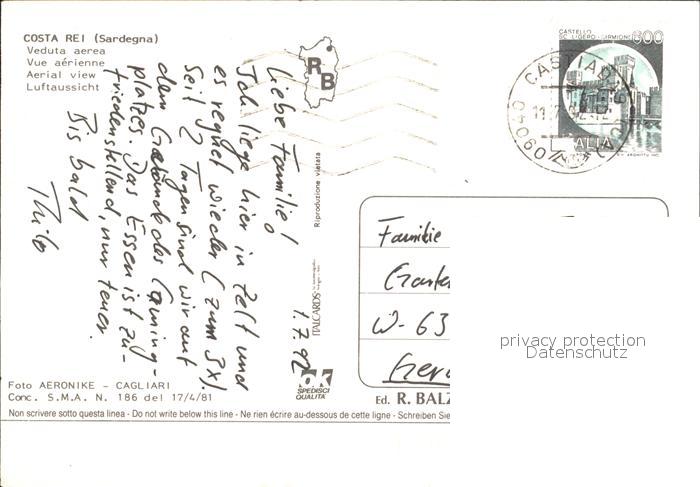 COSTA REI (Sardegna)
Veduta aerea
Vue aérienne
Aerial view
Luftaussicht
RB
1.7.92
Liebe Familie!
Ich liege hier im Zelt und
es regnet wieder (zum 3x).
Seit 2 Tagen sind wir auf
dem Gelände des Camping-
platzes. Das Essen ist zu-
friedenstellend, nur teuer.
Bis bald
Thilo
Riproduzione vietata
ITALCARDS
OK
SPEDISCI
QUALITA'
CASTELLO
SCALIGERO - SIRMIONE
600
ITALIA
CASTIADAS
09040
Familie
W-63
privacy protection
Datenschutz
Foto AERONIKE - CAGLIARI
Conc. S.M.A. N. 186 del 17/4/81
Ed. R. BALZ
Non scrivere sotto questa linea - Do not write below this line - Ne rien écrire au-dessous de cette ligne - Schreiben Sie